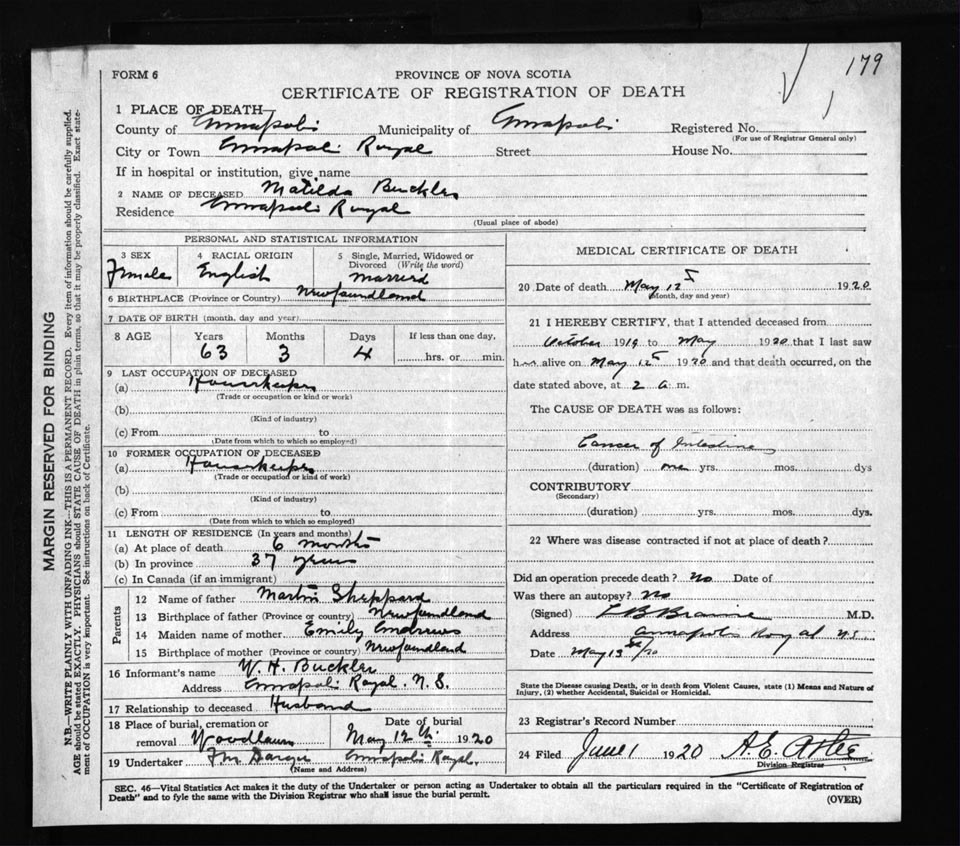 179
FORM 6
PROVINCE OF NOVA SCOTIA
CERTIFICATE OF REGISTRATION OF DEATH
1 PLACE OF DEATH—
County of Annapolis Municipality of Annapolis Registered No.
(For use of Registrar General only)
City or Town Annapolis Royal Street House No.
If in hospital or institution, give name
2 NAME OF DECEASED Matilda Buckler
Residence Annapolis Royal
(Usual place of abode)
PERSONAL AND STATISTICAL INFORMATION
3 SEX 4 RACIAL ORIGIN 5 Single, Married, Widowed or
Divorced (Write the word)
Female English Married
6 BIRTHPLACE (Province or Country) Newfoundland
7 DATE OF BIRTH (month, day and year)
8 AGE Years Months Days If less than one day,
63 3 4 hrs. or min.
9 LAST OCCUPATION OF DECEASED
(a) Housekeeper
(Trade or occupation or kind or work)
(b)
(Kind of industry)
(c) From to
(Date from which to which so employed)
10 FORMER OCCUPATION OF DECEASED
(a) Housekeeper
(Trade or occupation or kind of work)
(b)
(Kind of industry)
(c) From to
(Date from which to which so employed)
11 LENGTH OF RESIDENCE (In years and months)
(a) At place of death 6 months
(b) In province 37 years
(c) In Canada (if an immigrant)
Parents
12 Name of father Martin Sheppard
13 Birthplace of father (Province or country) Newfoundland
14 Maiden name of mother Emily Andrews
15 Birthplace of mother (Province or country) Newfoundland
16 Informant's name W. H. Buckler
Address Annapolis Royal. N. S.
17 Relationship to deceased Husband
18 Place of burial, cremation or Date of burial
removal Woodlawn May 12th 1920
19 Undertaker Annapolis Royal.
(Name and Address)
MEDICAL CERTIFICATE OF DEATH
20 Date of death May 12 1920
(Month, day and year)
21 I HEREBY CERTIFY, that I attended deceased from
October 1919 to May 1920 that I last saw
her alive on May 12 1920 and that death occurred, on the
date stated above, at 2 a.m.
The CAUSE OF DEATH was as follows:
Cancer of Intestine
(duration) one yrs. mos. dys
CONTRIBUTORY
(Secondary)
(duration) yrs. mos. dys.
22 Where was disease contracted if not at place of death?
Did an operation precede death? No Date of
Was there an autopsy? No
(Signed) L B Braine M.D.
Address Annapolis Royal N.S.
Date May 13 /20
State the Disease causing Death, or in death from Violent Causes, state (1) Means and Nature of
Injury, (2) whether Accidental, Suicidal or Homicidal.
23 Registrar's Record Number
24 Filed June 1 1920 A. E. Atlee
Division Registrar
SEC. 46—Vital Statistics Act makes it the duty of the Undertaker or person acting as Undertaker to obtain all the particulars required in the "Certificate of Registration of
Death" and to fyle the same with the Division Registrar who shall issue the burial permit.
(OVER)
MARGIN RESERVED FOR BINDING
N.B.—WRITE PLAINLY WITH UNFADING INK—THIS IS A PERMANENT RECORD. Every item of information should be carefully supplied.
AGE should be stated EXACTLY. PHYSICIANS should STATE CAUSE OF DEATH in plain terms, so that it may be properly classified. Exact state-
ment of OCCUPATION is very important. See instructions on back of Certificate.